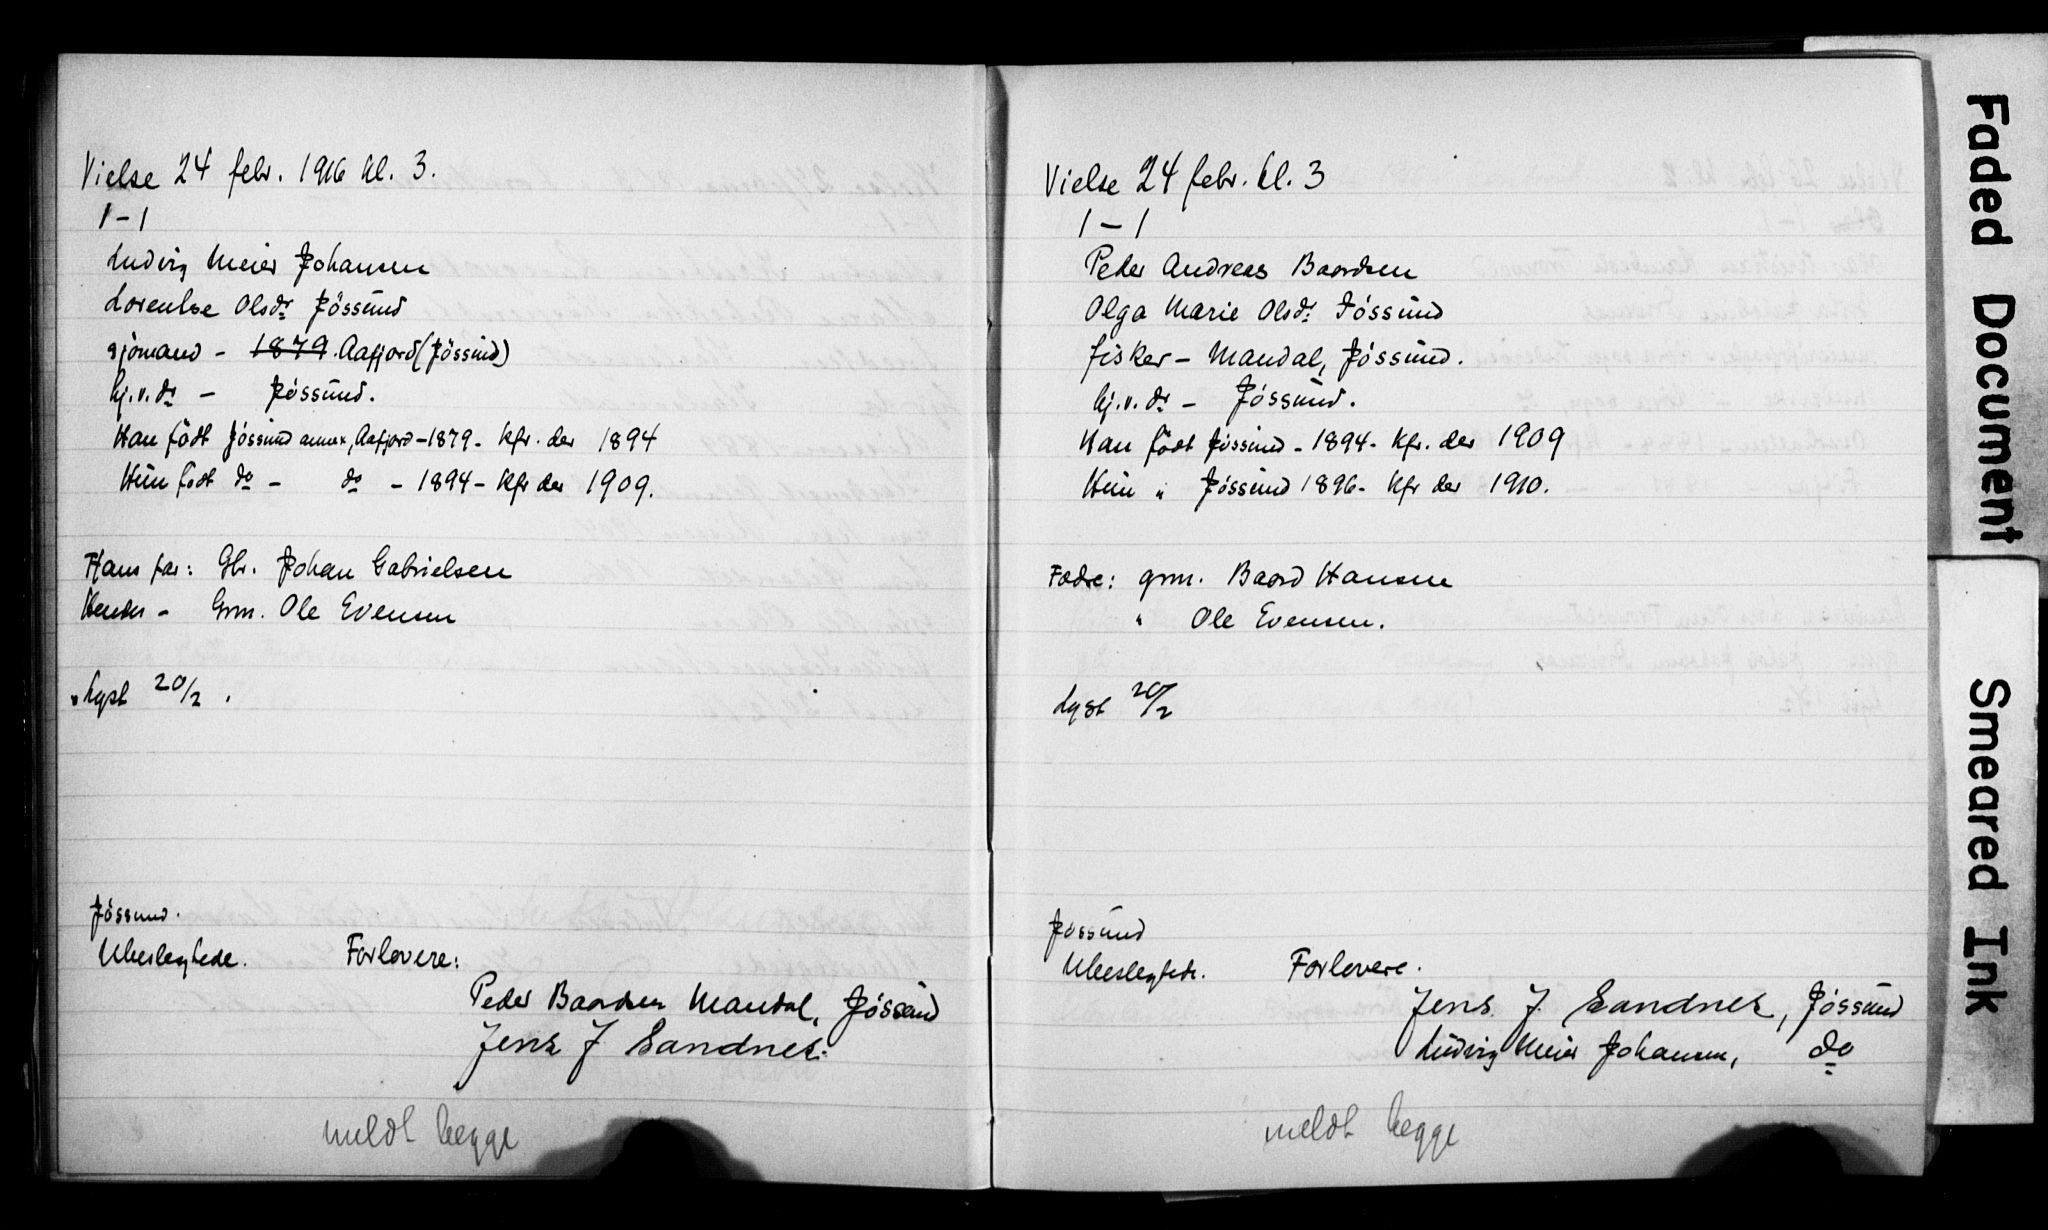 Vielse 24 febr. 1916 kl. 3.
1 - 1
Ludvig Meier Johansen
Lorentse Olsdr Jössund
sjömand - 1879. Aafjord (Jössund)
hj.v. dr - Jössund.
Han födt Jössund annex, Aafjord - 1879 - kfr. der 1894
Hun födt do - do - 1894 - kfr der 1909.
Hans far: Gbr. Johan Gabrielsen
Hendes - Grm. Ole Evensen
Lyst 20/2.
Jössund.
Ubeslegtede. Forlovere:
Peder Baardsen Mandal, Jössund
Jens J Sandnes.
meldt begge
Vielse 24 febr. kl. 3
1 - 1
Peder Andreas Baardsen
Olga Marie Olsdr. Jössund
fisker - Mandal, Jössund.
hj.v. dr - Jössund.
Han födt Jössund - 1894 - kfr. der 1909
Hun " Jössund 1896 - kfr der 1910.
Fædre: grm. Baard Hansen
" Ole Evensen.
Lyst 20/2
Jössund
Ubeslegtede. Forlovere.
Jens. J. Sandnes, Jössund
Ludvig Meier Johansen, do
meldt begge
Faded Document
Smeared Ink